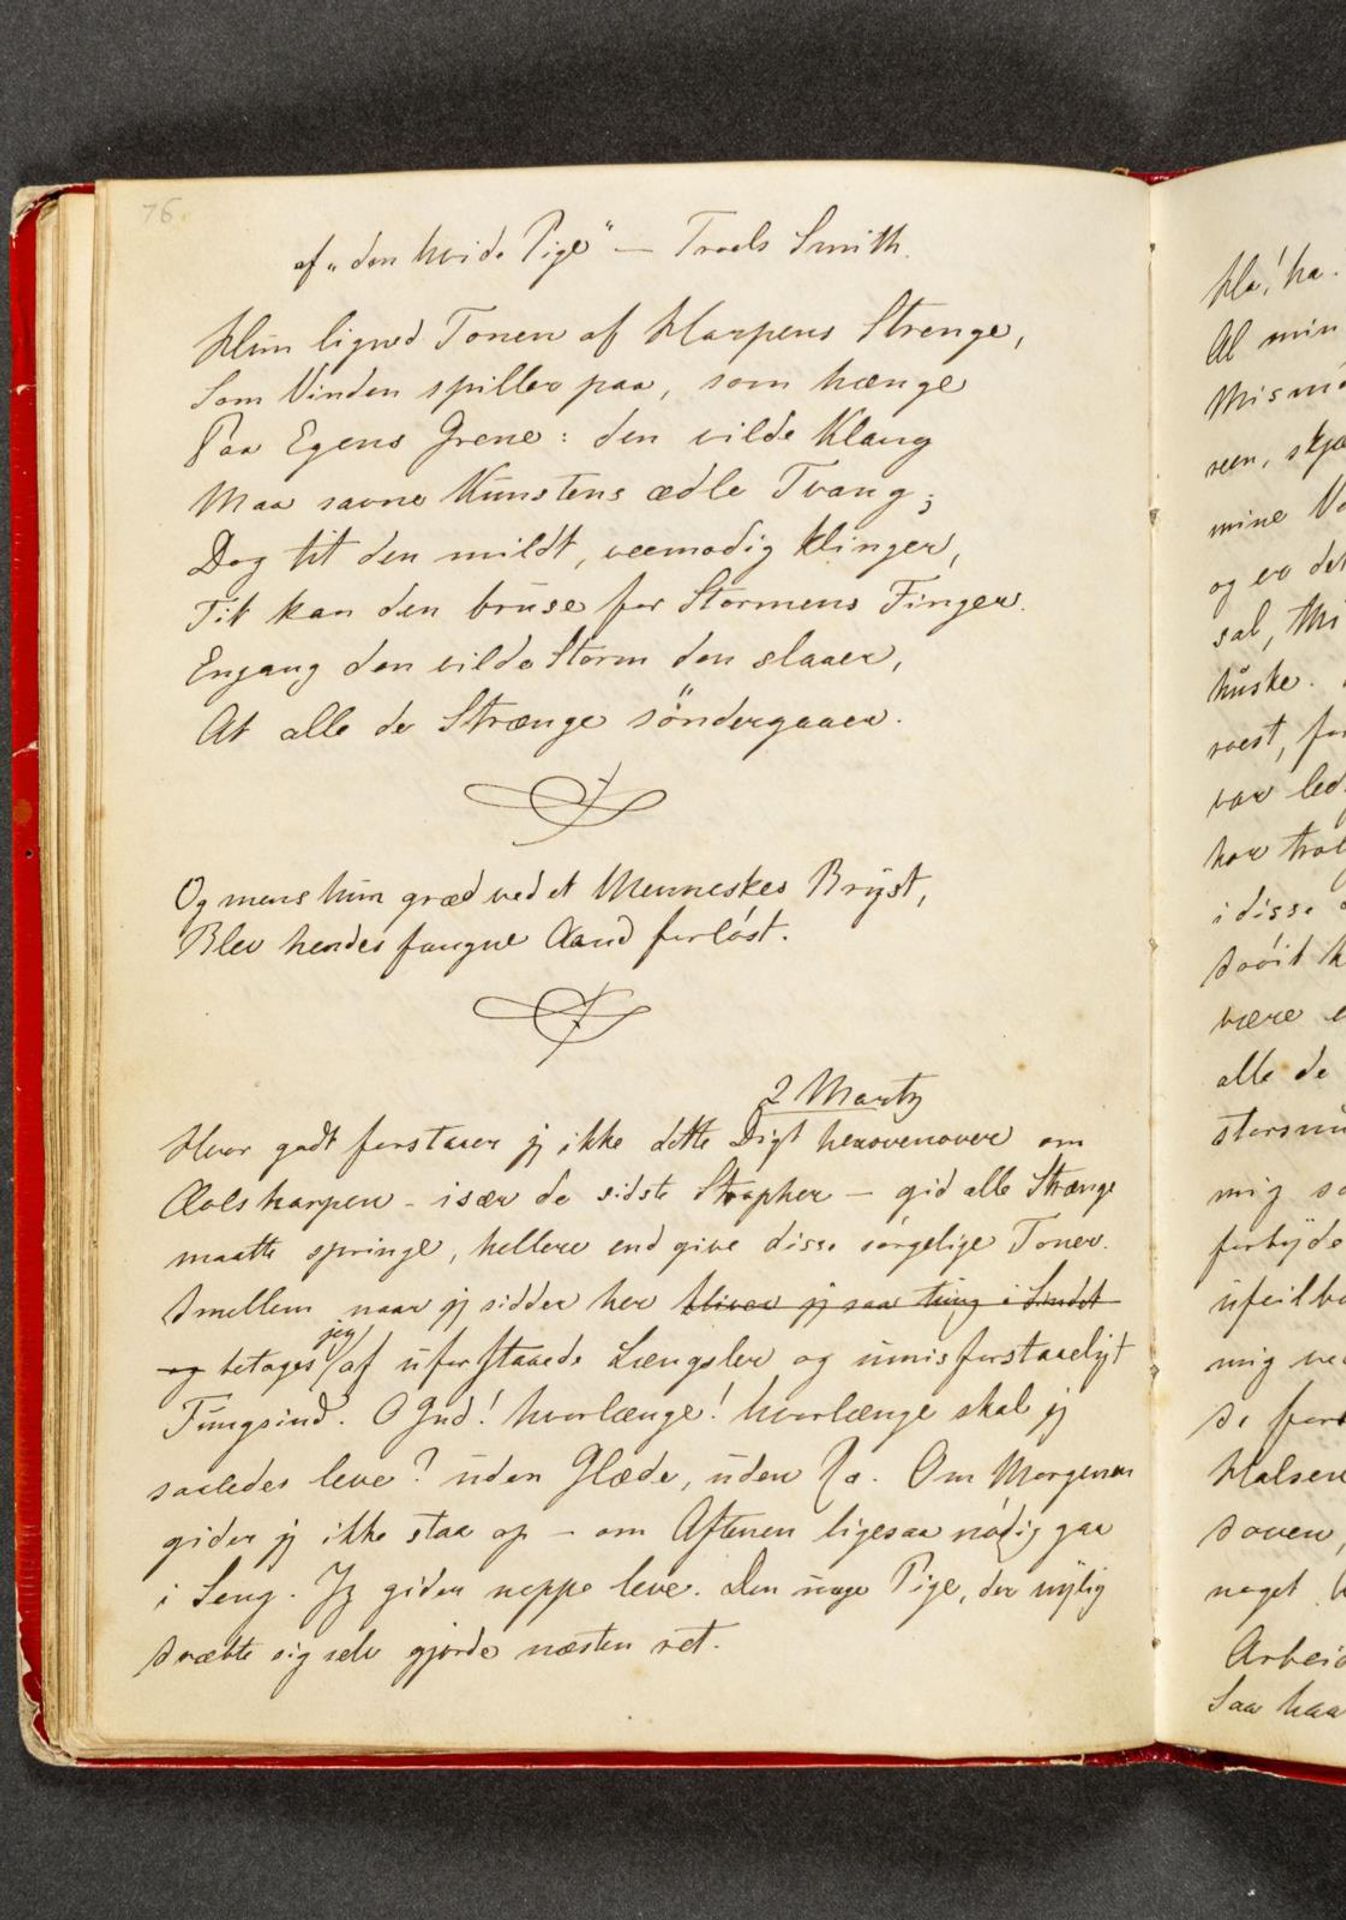 76.
af „den hvide Pige" — Troels Smith.
Hun ligned Tonen af Harpens Strenge,
Som Vinden spiller paa, som hænge
Paa Egens Grene: den vilde Klang
Maa savne Kunstens ædle Tvang;
Dog tit den mildt, veemodig klinger,
Tit kan den bruse for Stormens Finger.
Engang den vilde Storm den slaaer,
At alle de Strænge söndergaaer.
Og mens hun græd ved et Menneskes Bryst,
Blev hendes fangne Aand forlöst.
2 Martz
Hvor godt forstaaer jg ikke dette Digt herovenover om
Æolsharpen - især de sidste Stropher — gid alle Strænge
maatte springe, hellere end give disse sörgelige Toner.
Imellem naar jg sidder her bliver jg saa tung i Sindet
og betages jeg af uforstaaede Længsler og umisforstaaeligt
Tungsind. O Gud! hvorlænge! hvorlænge skal jg
saaledes leve? uden Glæde, uden Ro. Om Morgenen
gider jg ikke staa op — om Aftenen ligesaa nödig gaa
i Seng. Jg gider neppe leve. Den unge Pige, der nylig
dræbte sig selv gjorde næsten ret.
Ha! ha.
Al min
seen,
mine
og er det
sal,
huske.
var
i disse
være
alle de
mig
mig
Halsen
noget
Saa